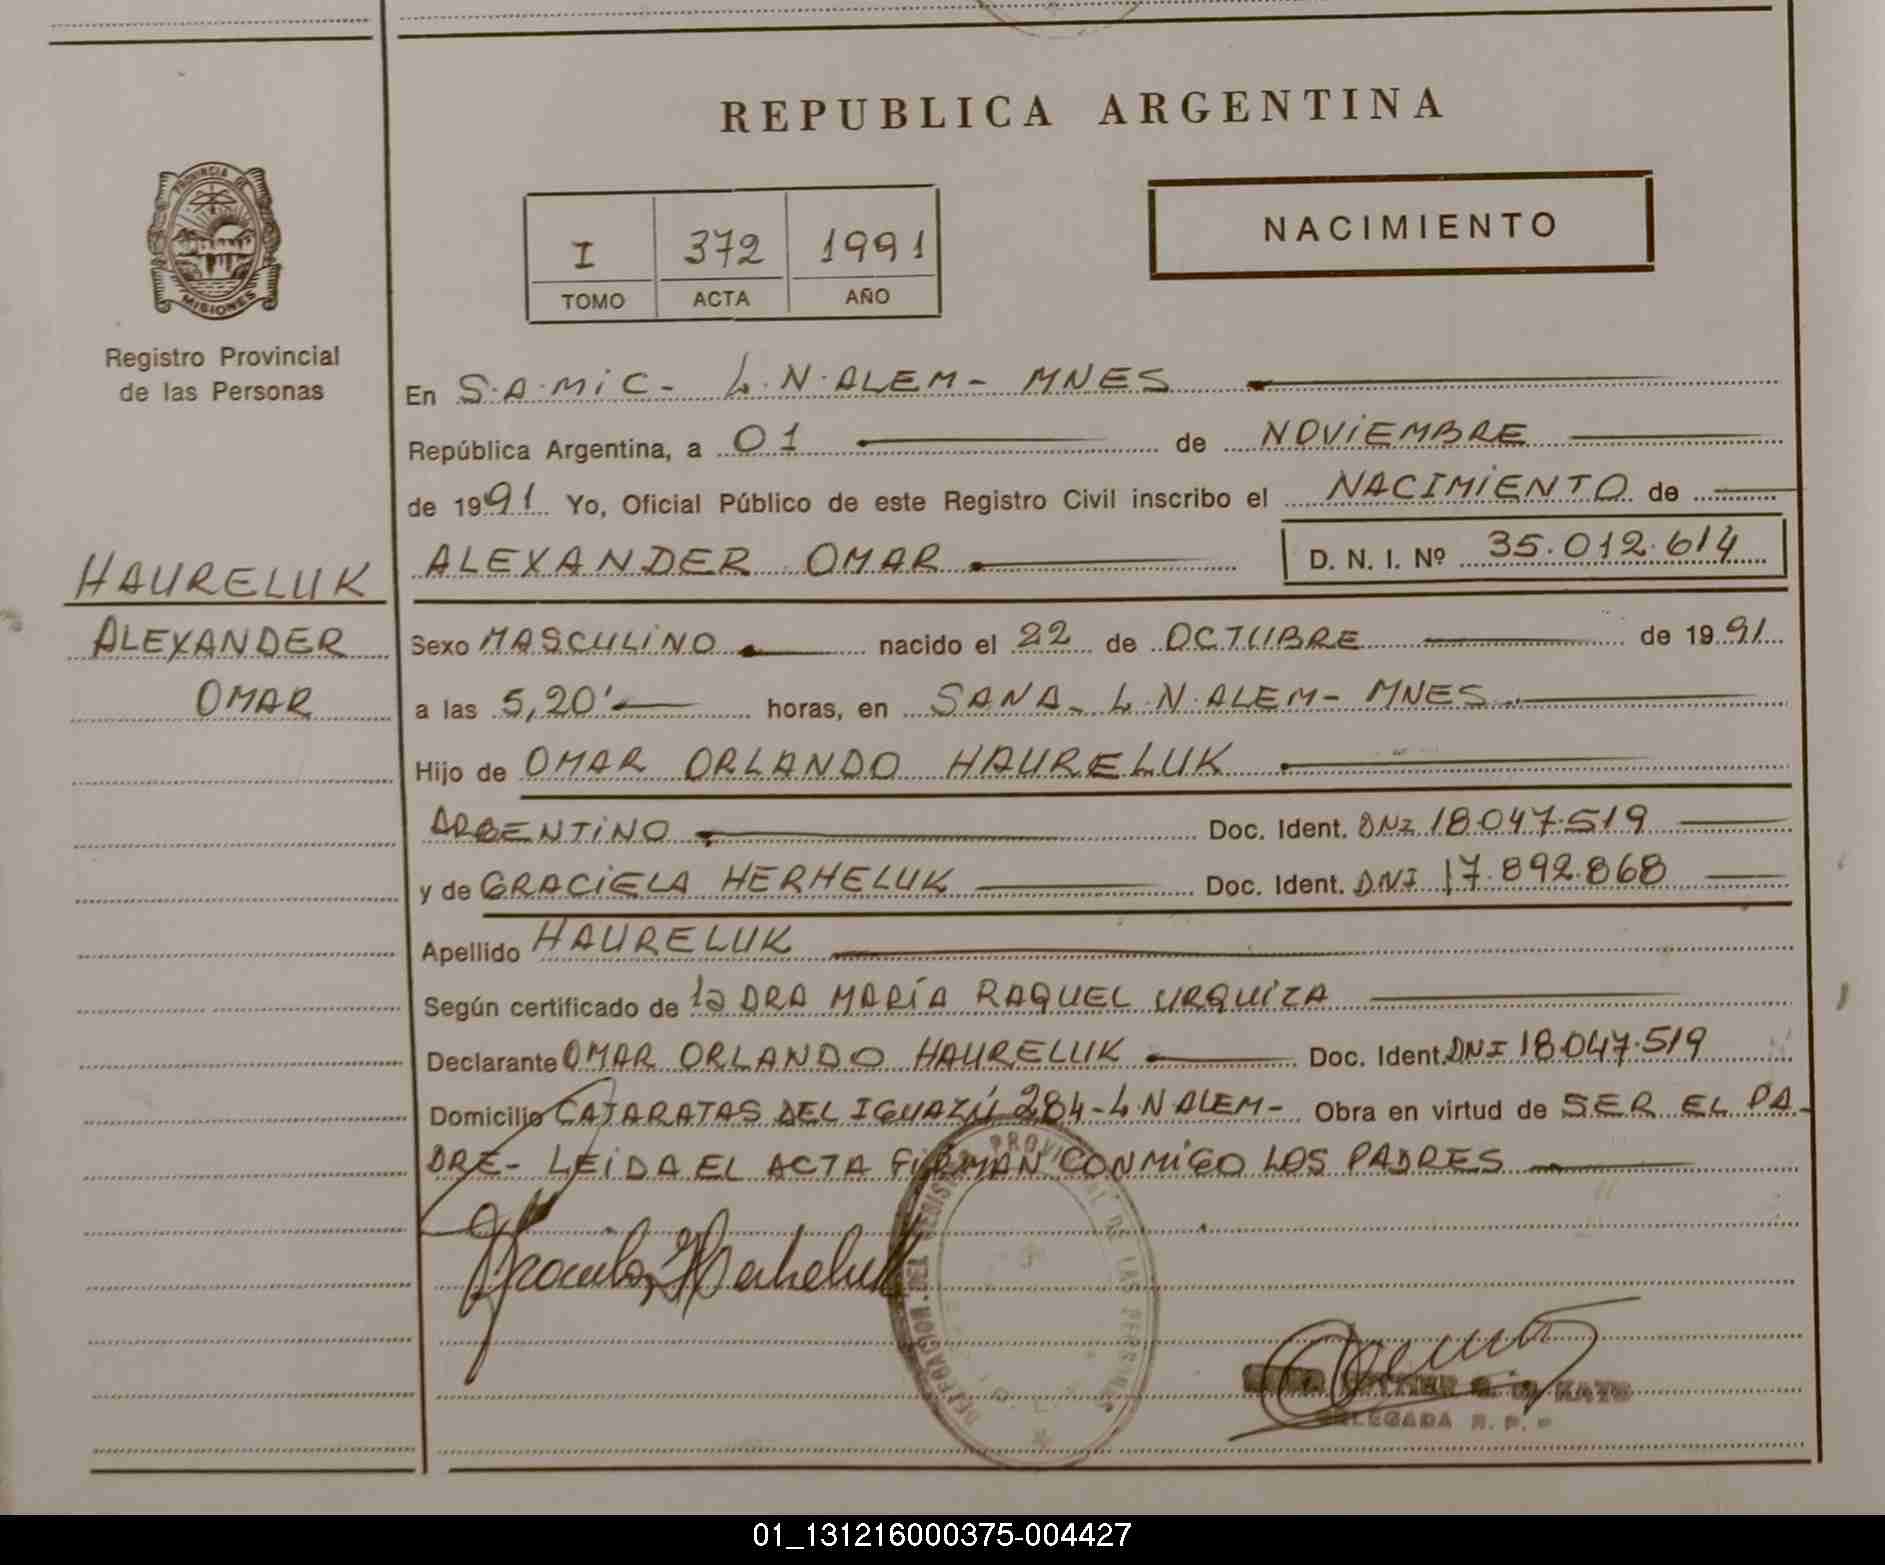 REPUBLICA ARGENTINA
PROVINCIA DE
MISIONES
Registro Provincial
de las Personas
I 372 1991
TOMO ACTA AÑO
NACIMIENTO
En S.A.MiC- L.N.ALEM- MNES
República Argentina, a 01 de NOViEMBRE
de 1991 Yo, Oficial Público de este Registro Civil inscribo el NACIMIENTO de
ALEXANDER OMAR D. N. I. Nº 35.012.614
HAURELUK
ALEXANDER
OMAR
Sexo MASCULiNO nacido el 22 de OCTUBRE de 1991
a las 5,20' horas, en SANA- L.N.ALEM- MNES
Hijo de OMAR ORLANDO HAURELUK
ARGENTiNO Doc. Ident. DNI 18.047.519
y de GRACiELA HERHELUK Doc. Ident. DNI 17.892.868
Apellido HAURELUK
Según certificado de la DRA MARÍA RAQUEL URQUIZA
Declarante OMAR ORLANDO HAURELUK Doc. Ident. DNI 18.047.519
Domicilio CATARATAS DEL IGUAZÚ 284-L.N ALEM- Obra en virtud de SER EL PA-
DRE- LEiDA EL ACTA FiRMAN CONMiGO LOS PADRES
DELEGACION DEL REGISTRO PROVINCIAL DE LAS PERSONAS
DELEGADA R. P. P
01_131216000375-004427